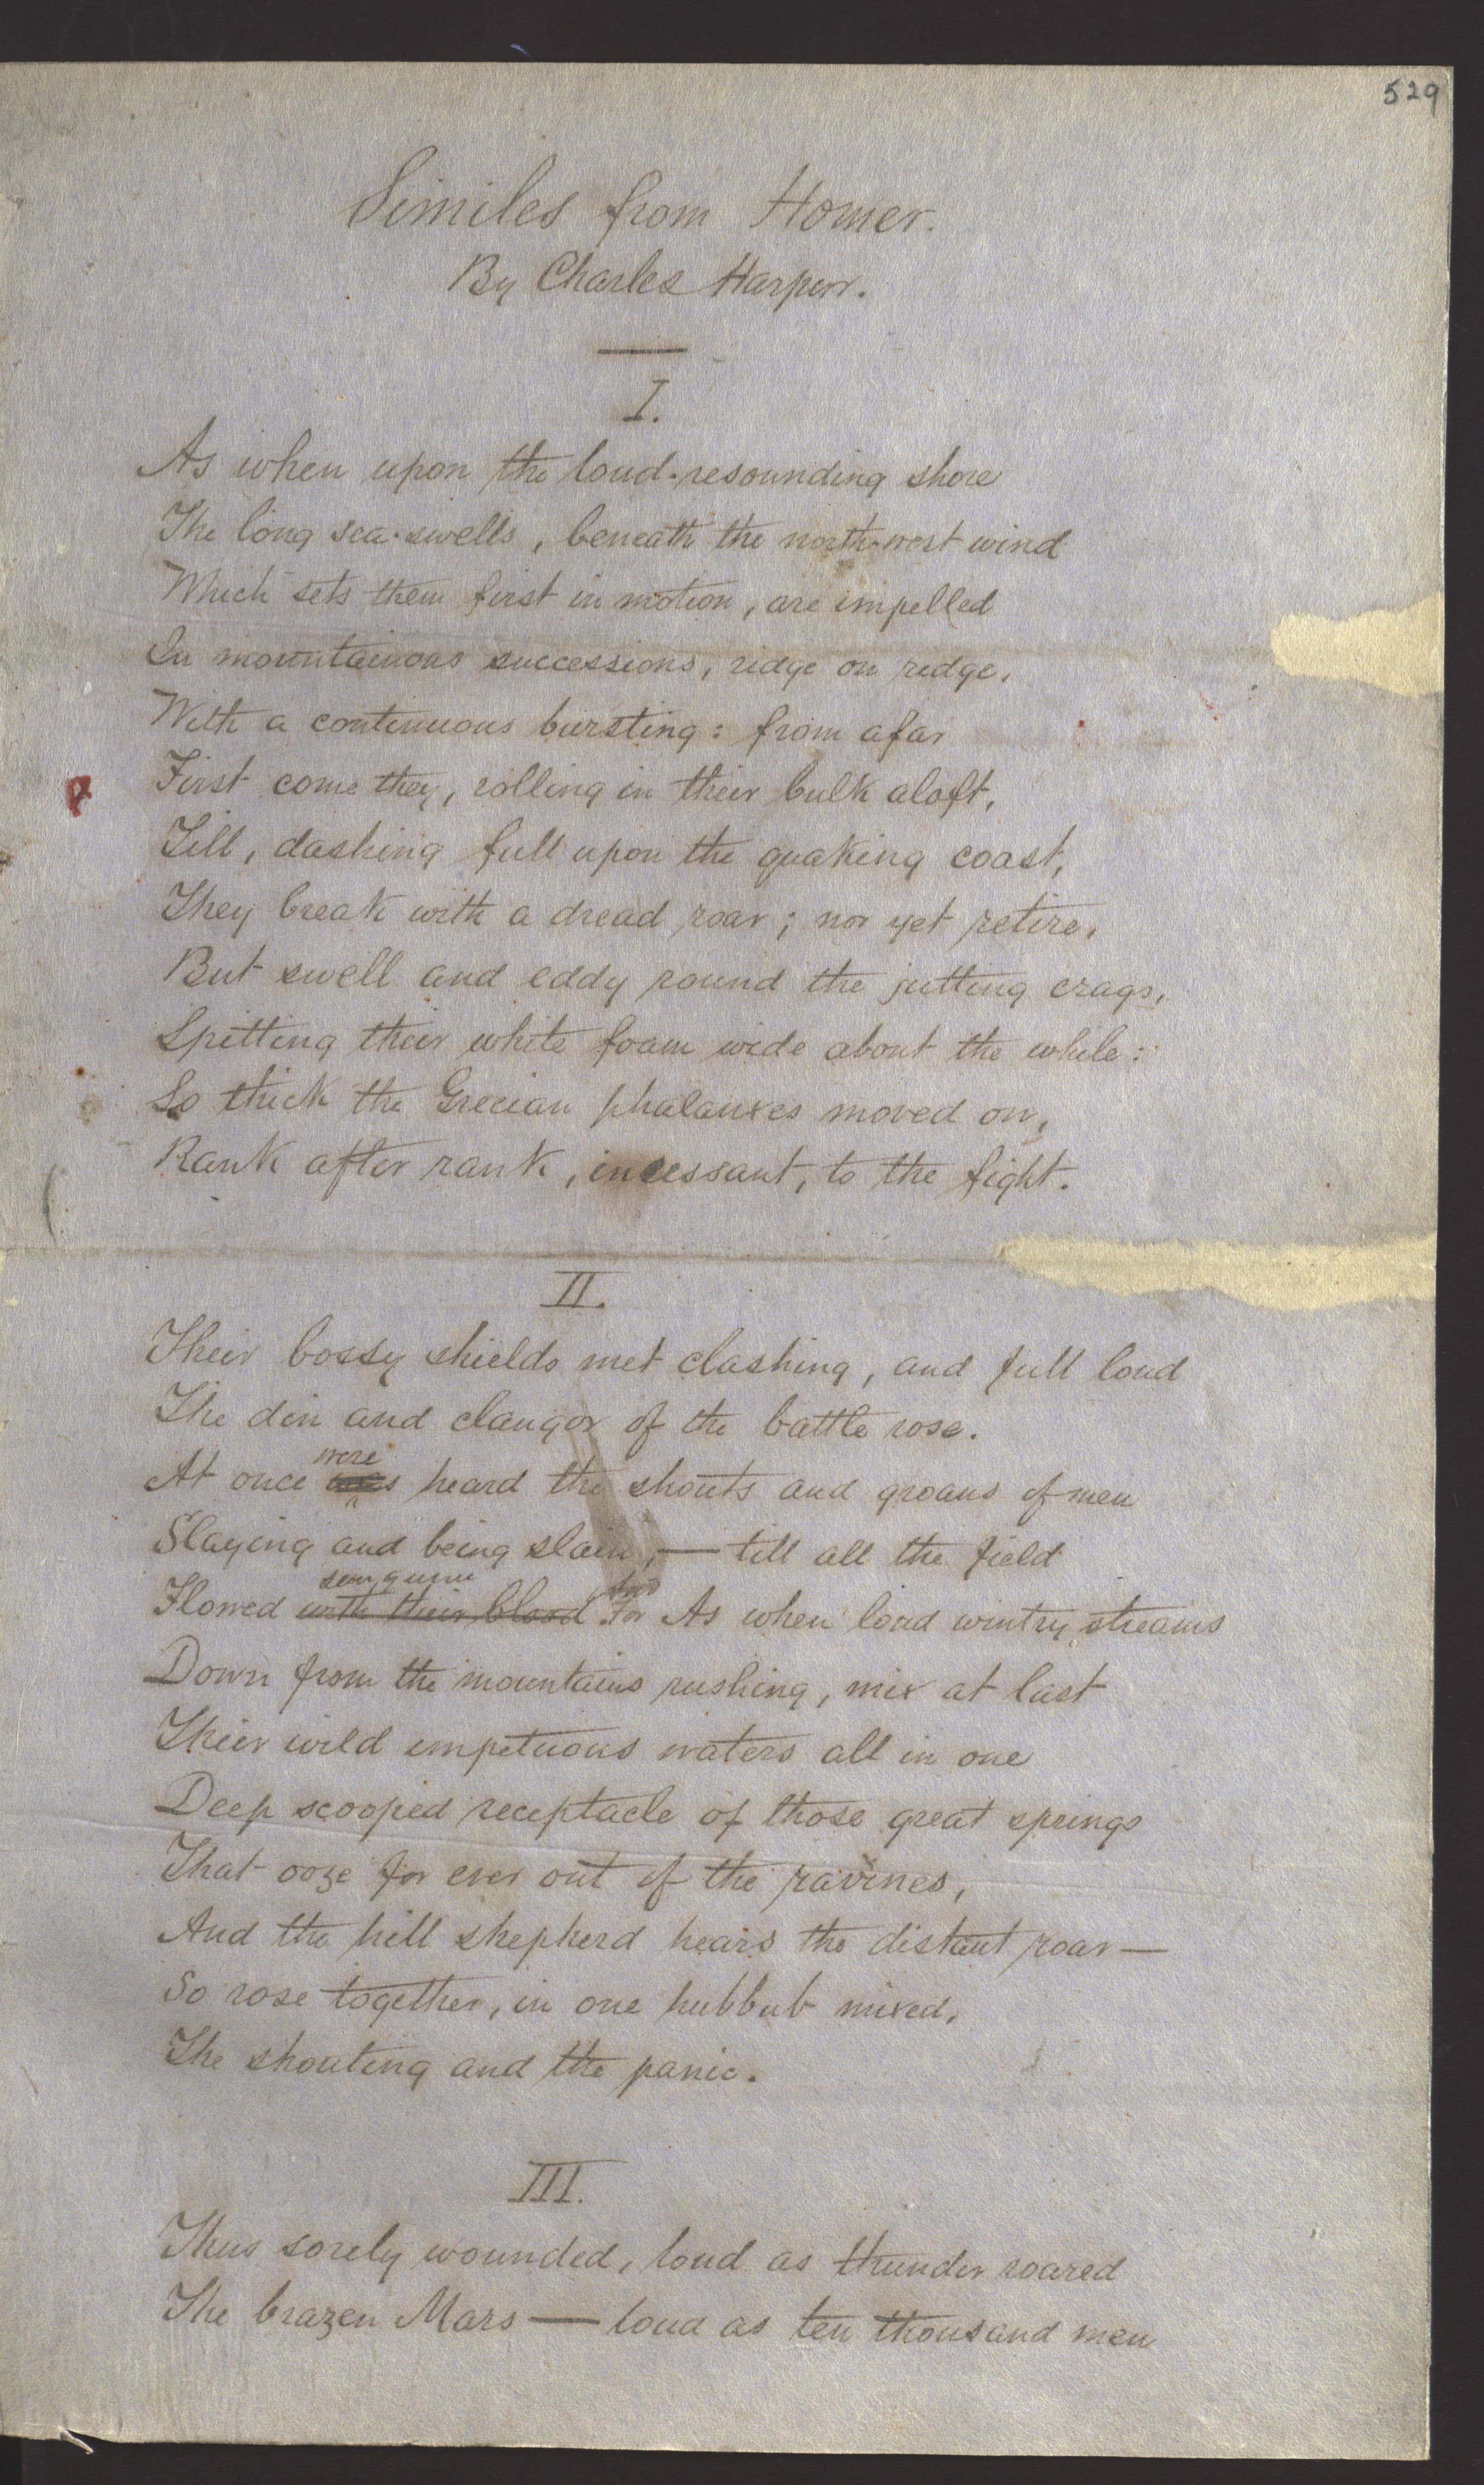 529
Similes from Homer.
By Charles Harpur.
I.
As when upon the loud-resounding shore
The long sea-swells, beneath the north-west wind
Which sets them first in motion, are impelled
In mountainous successions, ridge on ridge,
With a continuous bursting: from afar
First come they, rolling in their bulk aloft,
Till, dashing full upon the quaking coast,
They break with a dread roar; nor yet retire,
But swell and eddy round the jutting crags,
Spitting their white foam wide about the while:
So thick the Grecian phalanxes moved on,
Rank after rank, incessant, to the fight.
II.
Their bossy shields met clashing, and full loud
The din and clangor of the battle rose.
were
At once was heard the shouts and groans of men
Slaying and being slain, — till all the field
sanguine
Flowed with their blood. For As when loud wintry streams
Down from the mountains rushing, mix at last
Their wild impetuous waters all in one
Deep scooped receptacle of those great springs
That ooze for ever out of the ravines,
And the hill shepherd hears the distant roar —
So rose together, in one hubbub mixed,
The shouting and the panic.
III.
Thus sorely wounded, loud as thunder roared
The brazen Mars — loud as ten thousand men